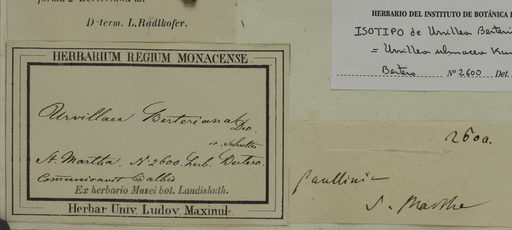 Determ. L. Radlkofer.
HERBARIUM REGIUM MONACENSE
Urvillaea Berteriana Dec.
St Martha. N 2600 herb. Bertero.
Communicavit Balbis
Ex herbario Musei bot. Landishuth.
Herbar Univ. Ludov. Maximil.
HERBARIO DEL INSTITUTO DE BOTÁNICA
ISOTIPO de Urvillea Berteri
= Urvillea ulmacea Kun
Bertero Nº 2600 Det.
2600.
paullinia
S. Martha